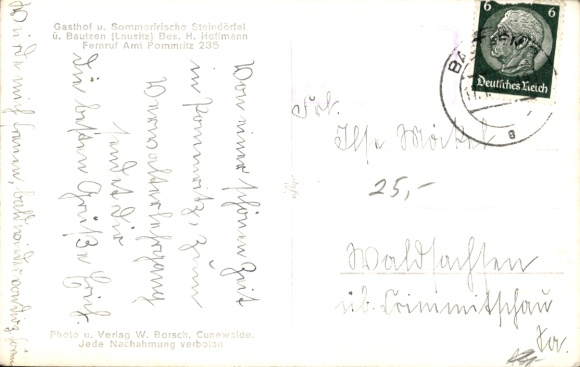 Gasthof u. Sommerfrische Steindörfel
ü. Bautzen (Lausitz) Bes. H. Hoffmann
Fernruf Amt Pommritz 235
Von einer schönen Zeit
in Pommritz, zum
sendet dir
die besten Grüße
Würde mich freuen, bald wieder
Photo u. Verlag W. Borsch, Cunewalde.
Jede Nachahmung verboten
6 6
Deutsches Reich
Frl.
Ilse Möckel
25,-
Waldsachsen
üb. Crimmitschau
Sa.